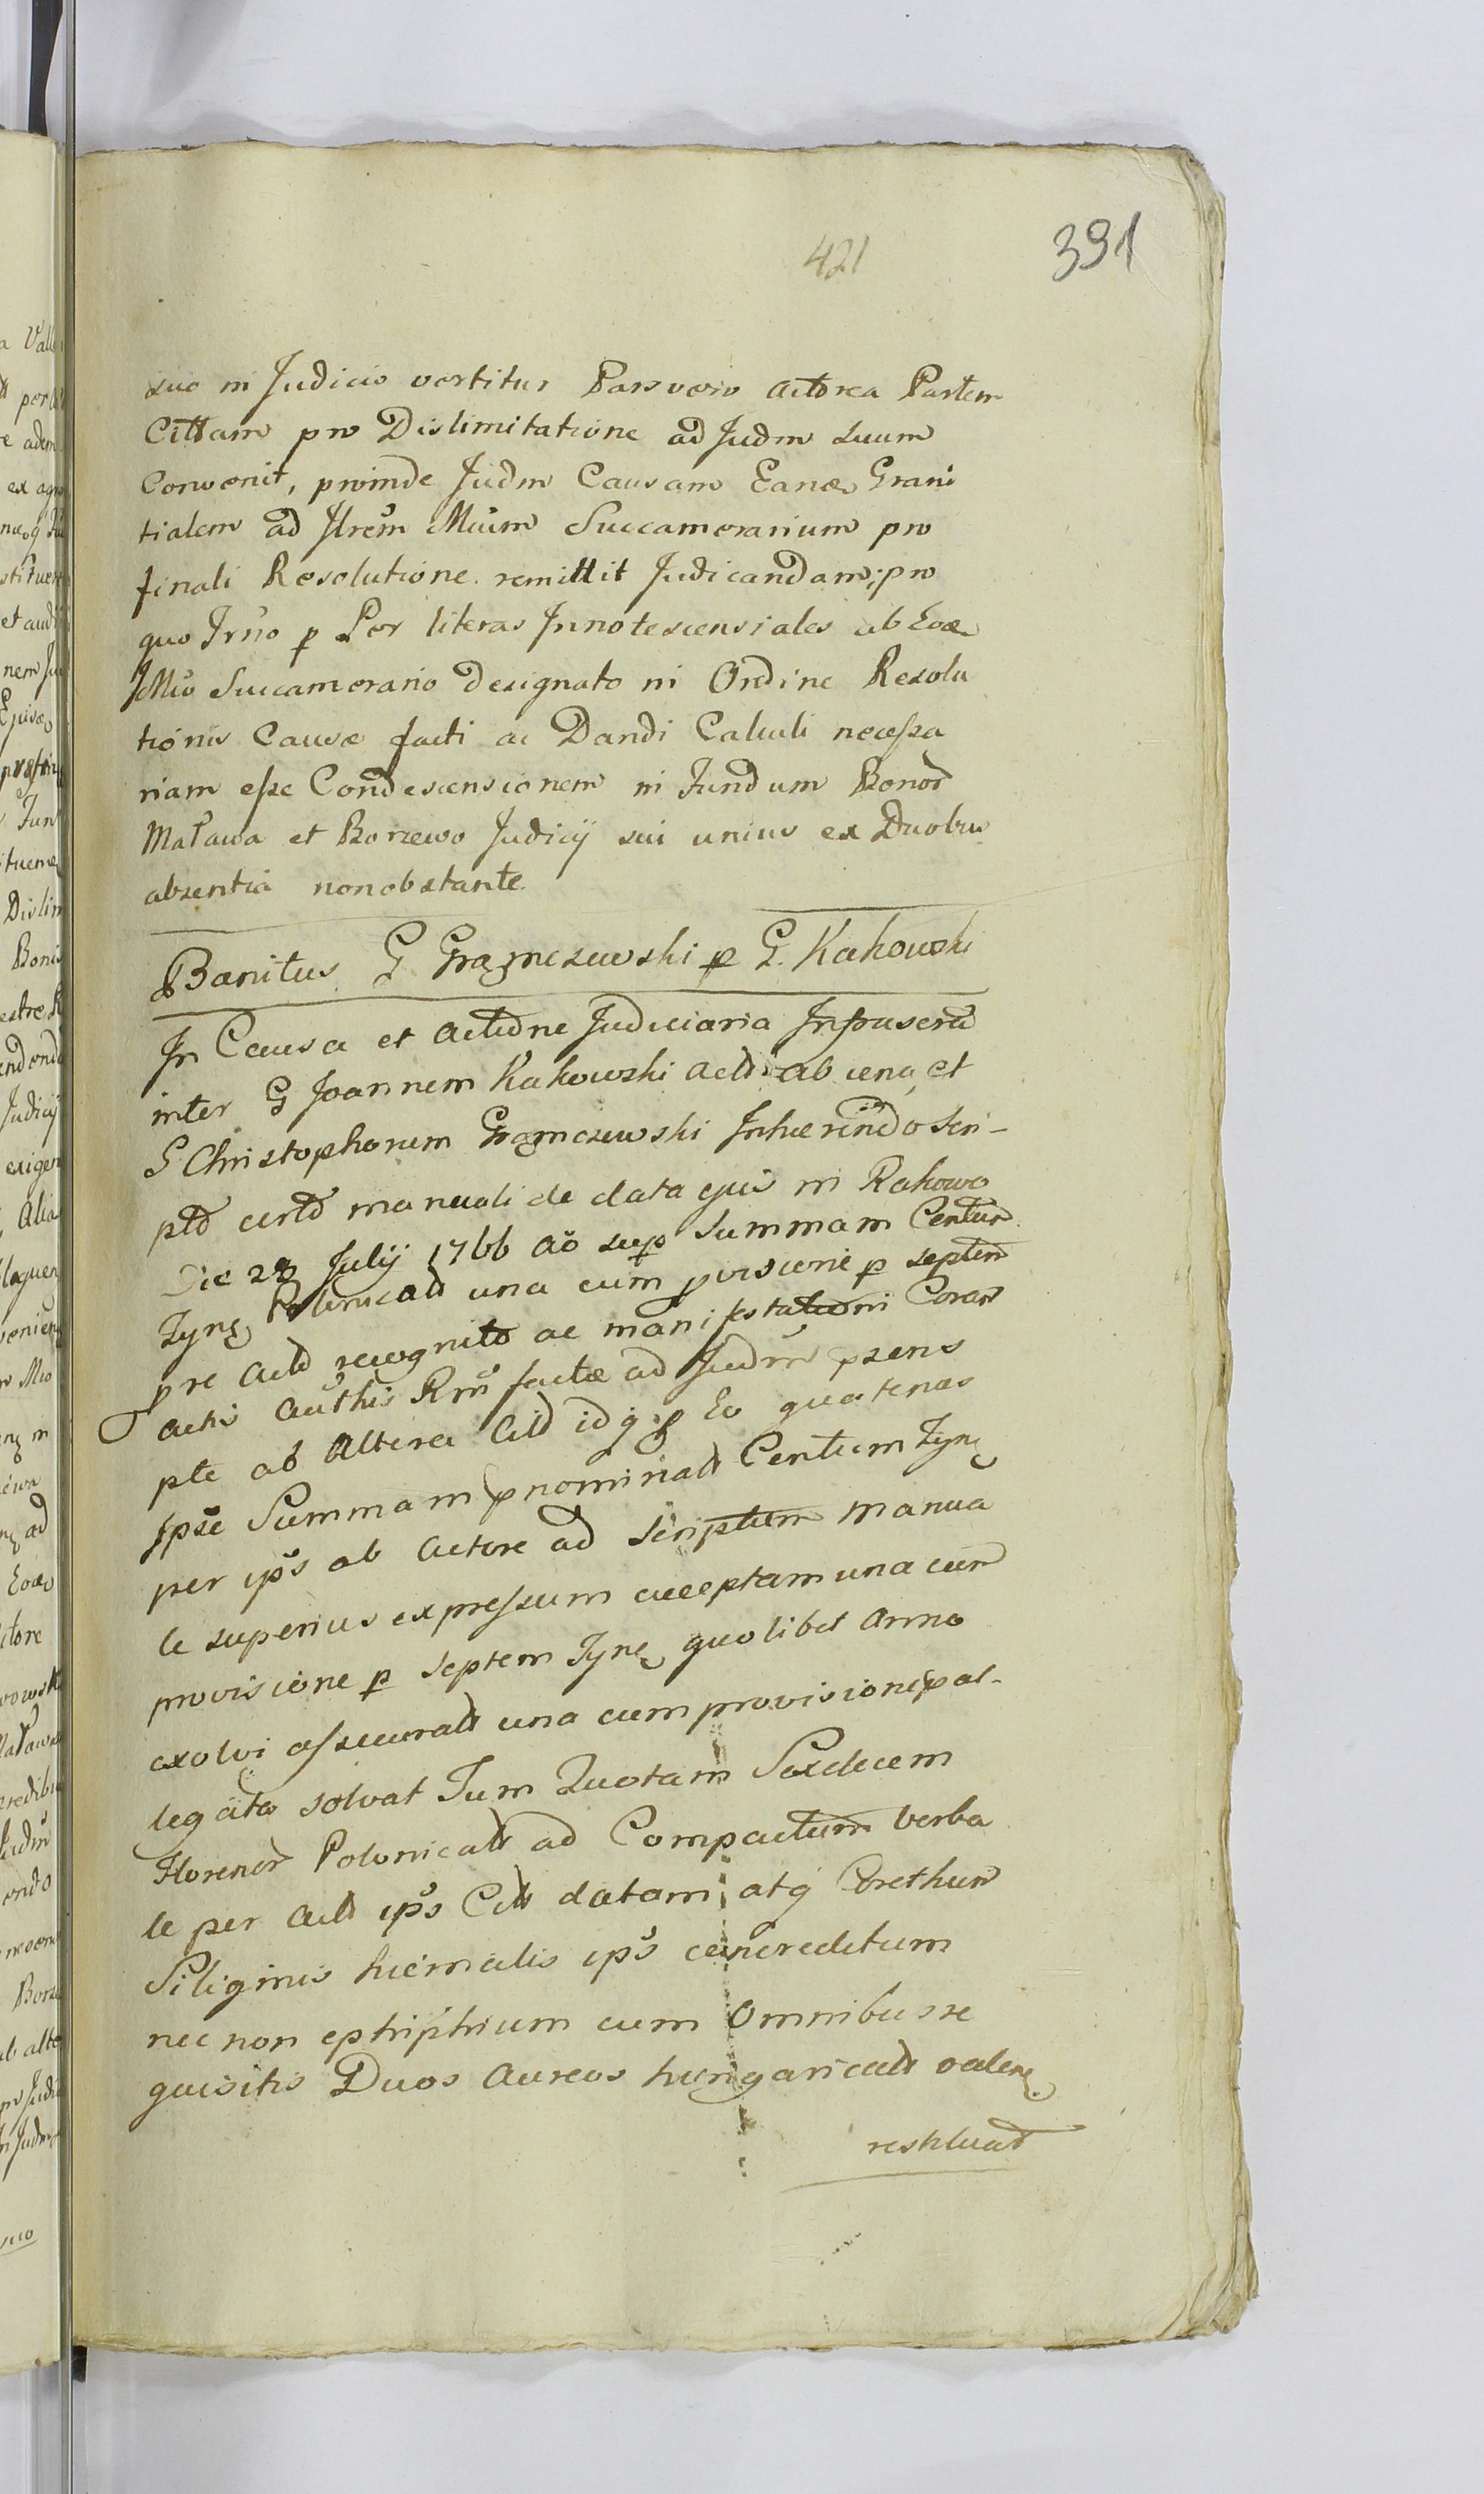 421
391
suo in Judicio vertitur Pars vero actorea Partem
Cittam pro Dislimitatione ad Judm suum
Convenit, proinde Judm Causam Eandę Grani
tialem ad Ilrem Mcum Succamerarium pro
finali Resolutione remittit Judicandam; pro
quo Trno p Per literas Innotescensiales ab Eode
Mco Succamerario designato in Ordine Resolu
tionis Causæ facti ac Dandi Calculi necessa
riam esse Condescensionem in Fundum Bonor
Maława et Borzewo Judicij sui unius ex Duobus
absentia nonobstante
Banitus G Grązmeszewski p G. Kakowski
In Causa et actione Judiciaria
inter G Joannem Kakowski act ab una et
G Christophorum Inhærendo Scri-
pto certo manuali de data ejus in Rakowo
Die 28 Julij 1766 ao sup Summam Centum
Tynę Polonical una cum provisione p septem
pre act recognito ac manifestationi Coram
actis authis Rm factæ ad Judm præsens
pte ab altera Citt idq Eo quatenus
Ipse Summam prænominatt Centum Tynę
per ips ab Actore ad Scriptum manua
le superius expressum acceptam una cum
provisione p Septem Tynę quolibet anno
exolvi assecuratt una cum provisione p al-
legata solvat Tum Quotam Sexdecem
Florenor Polonicatt ad Compactum Verba
le per Act ips Citt datam atq Corethum
Siliginis hiemalis ips concreditum
nec non ephiphium cum Omnibus re
quisitis Duos Aureos hungaricatt valenę
restituat